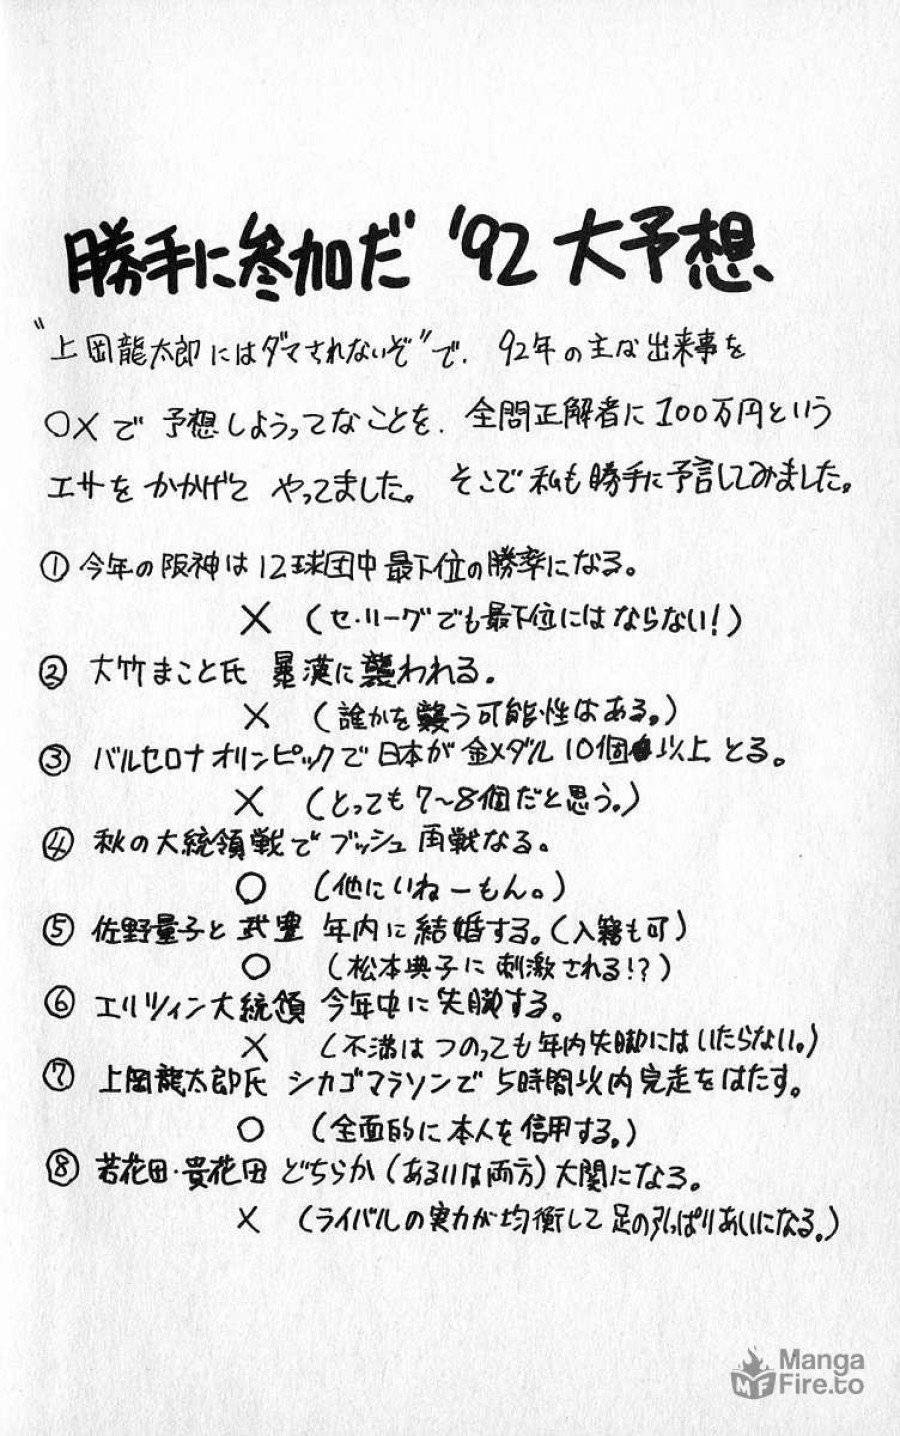 勝手に参加だ '92 大予想
“上岡龍太郎にはダマされないぞ”で、92年の主な出来事を
○×で予想しようってなことを、全問正解者に100万円という
エサをかかげて やってました。そこで私も勝手に予言してみました。
①今年の阪神は12球団中最下位の勝率になる。
× (セ・リーグでも最下位にはならない!)
②大竹まこと氏 暴漢に襲われる。
× (誰かを襲う可能性はある。)
③バルセロナオリンピックで日本が金メダル10個以上とる。
× (とっても7~8個だと思う。)
④秋の大統領戦でブッシュ再戦なる。
○ (他にいねーもん。)
⑤佐野量子と武豊 年内に結婚する。(入籍も可)
○ (松本典子に刺激される!?)
⑥エリツィン大統領 今年中に失脚する。
× (不満はつのっても年内失脚にはいたらない。)
⑦上岡龍太郎氏 シカゴマラソンで5時間以内完走をはたす。
○ (全面的に本人を信用する。)
⑧若花田・貴花田どちらか(あるいは両方)大関になる。
× (ライバルの実力が均衡して足の引っぱりあいになる。)
Manga
Fire.to
MF